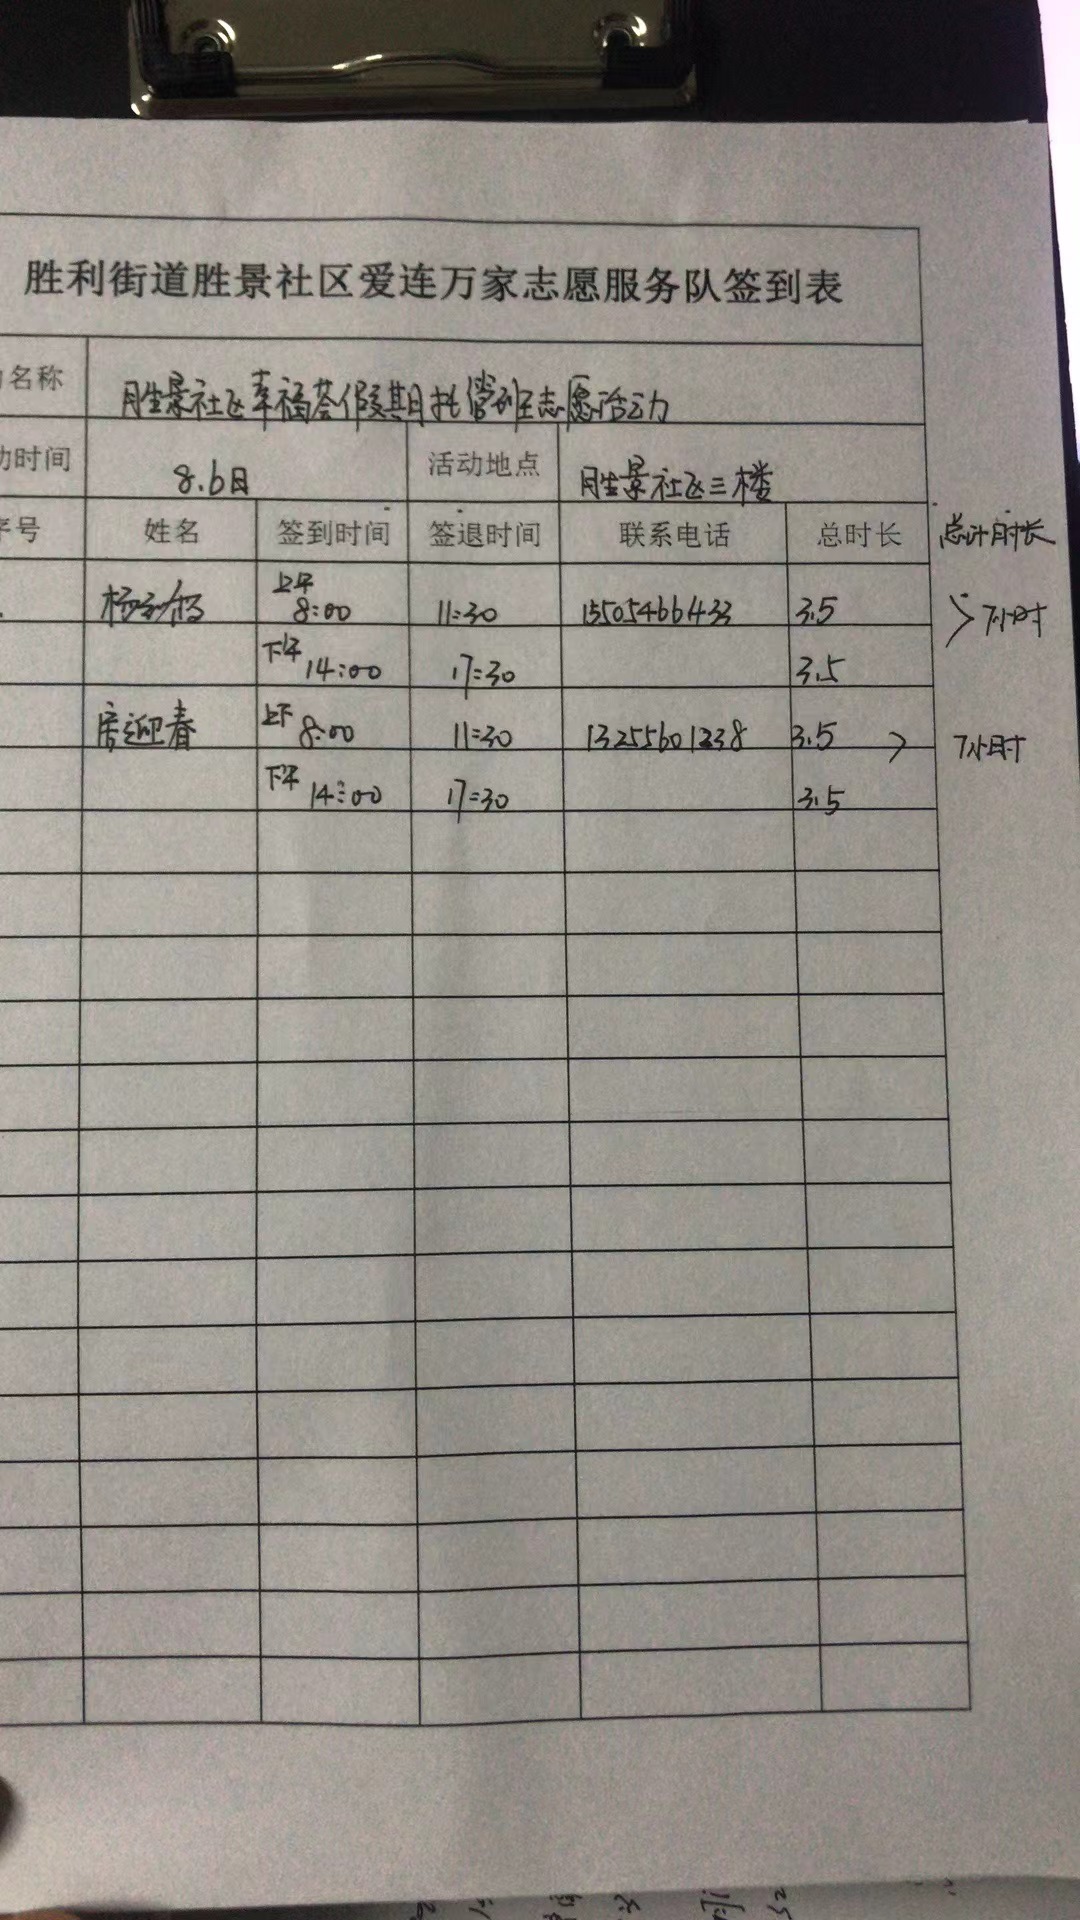 胜利街道胜景社区爱连万家志愿服务队签到表
名称 胜景社区幸福荟假期托管班志愿活动
动时间 8.6日 活动地点 胜景社区三楼
序号 姓名 签到时间 签退时间 联系电话 总时长 总计时长
上午 8:00 11:30 15505466433 3.5 > 7小时
下午 14:00 17:30 3.5
房迎春 上午 8:00 11:30 13255601238 3.5 > 7小时
下午 14:00 17:30 3.5